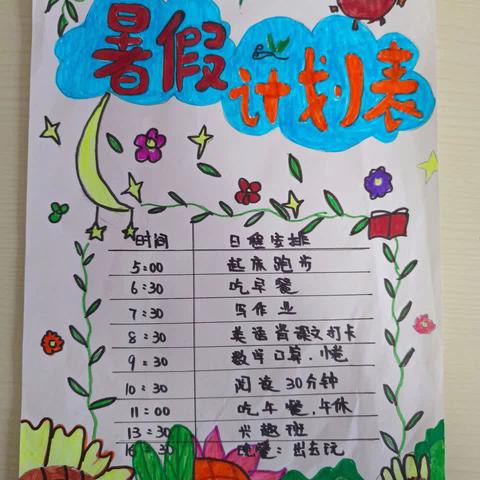 暑假
计划表
时间 日程安排
5:00 起床跑步
6:30 吃早餐
7:30 写作业
8:30 英语背课文打卡
9:30 数学口算.小卷
10:30 阅读30分钟
11:00 吃午餐,午休
13:30 兴趣班
16:30 晚餐:出去玩